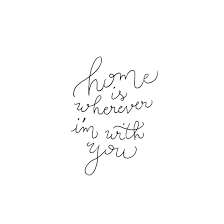 home
is
wherever
i'm with
you